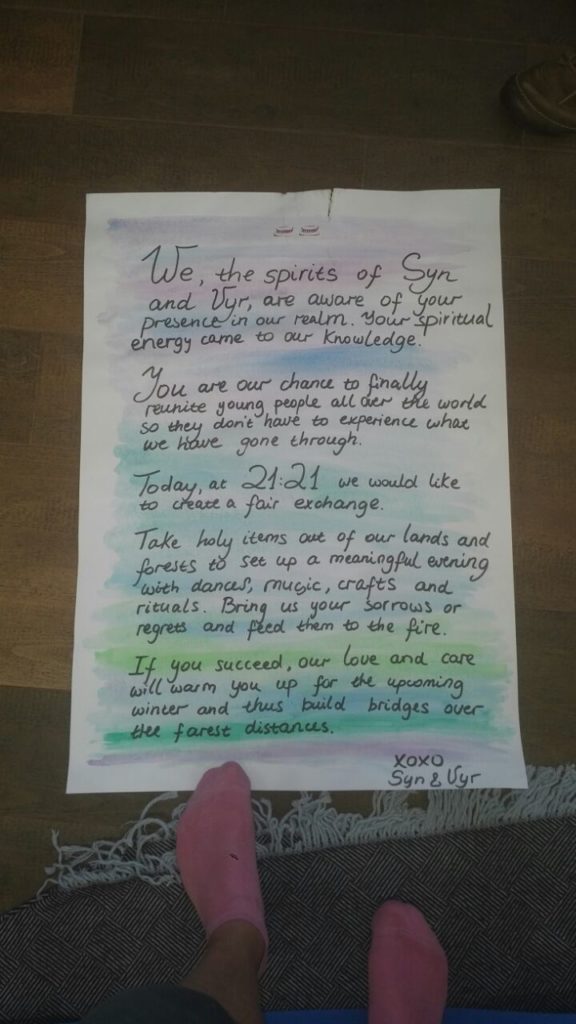 We, the spirits of Syn
and Vyr, are aware of your
presence in our realm. Your spiritual
energy came to our knowledge.
You are our chance to finally
reunite young people all over the world
so they don't have to experience what
we have gone through.
Today, at 21:21 we would like
to create a fair exchange.
Take holy items out of our lands and
forests to set up a meaningful evening
with dances, music, crafts and
rituals. Bring us your sorrows or
regrets and feed them to the fire.
If you succeed, our love and care
will warm you up for the upcoming
winter and thus build bridges over
the farest distances.
xoxo
Syn & Vyr